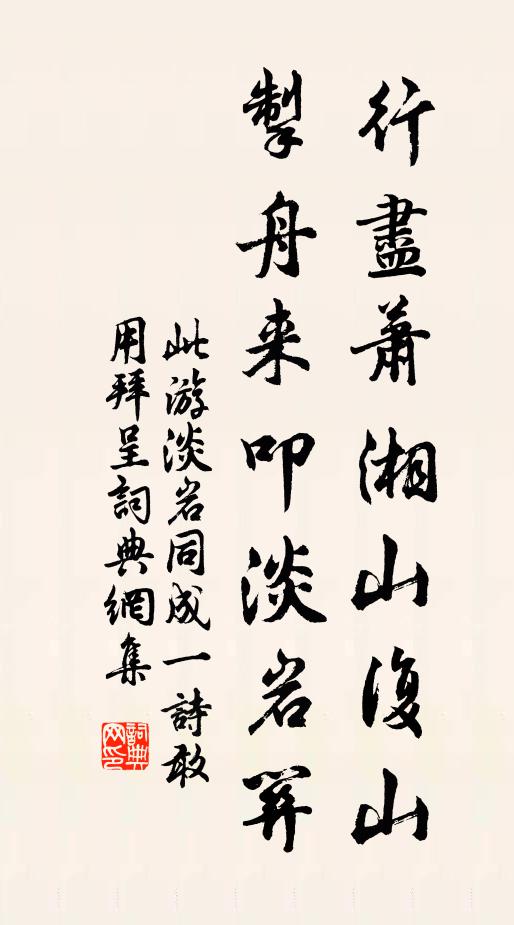 行盡蕭湘山復山
掣舟来叩淡岩関
此游淡岩同成一詩敢
用拜呈詞典網集
詞典网印